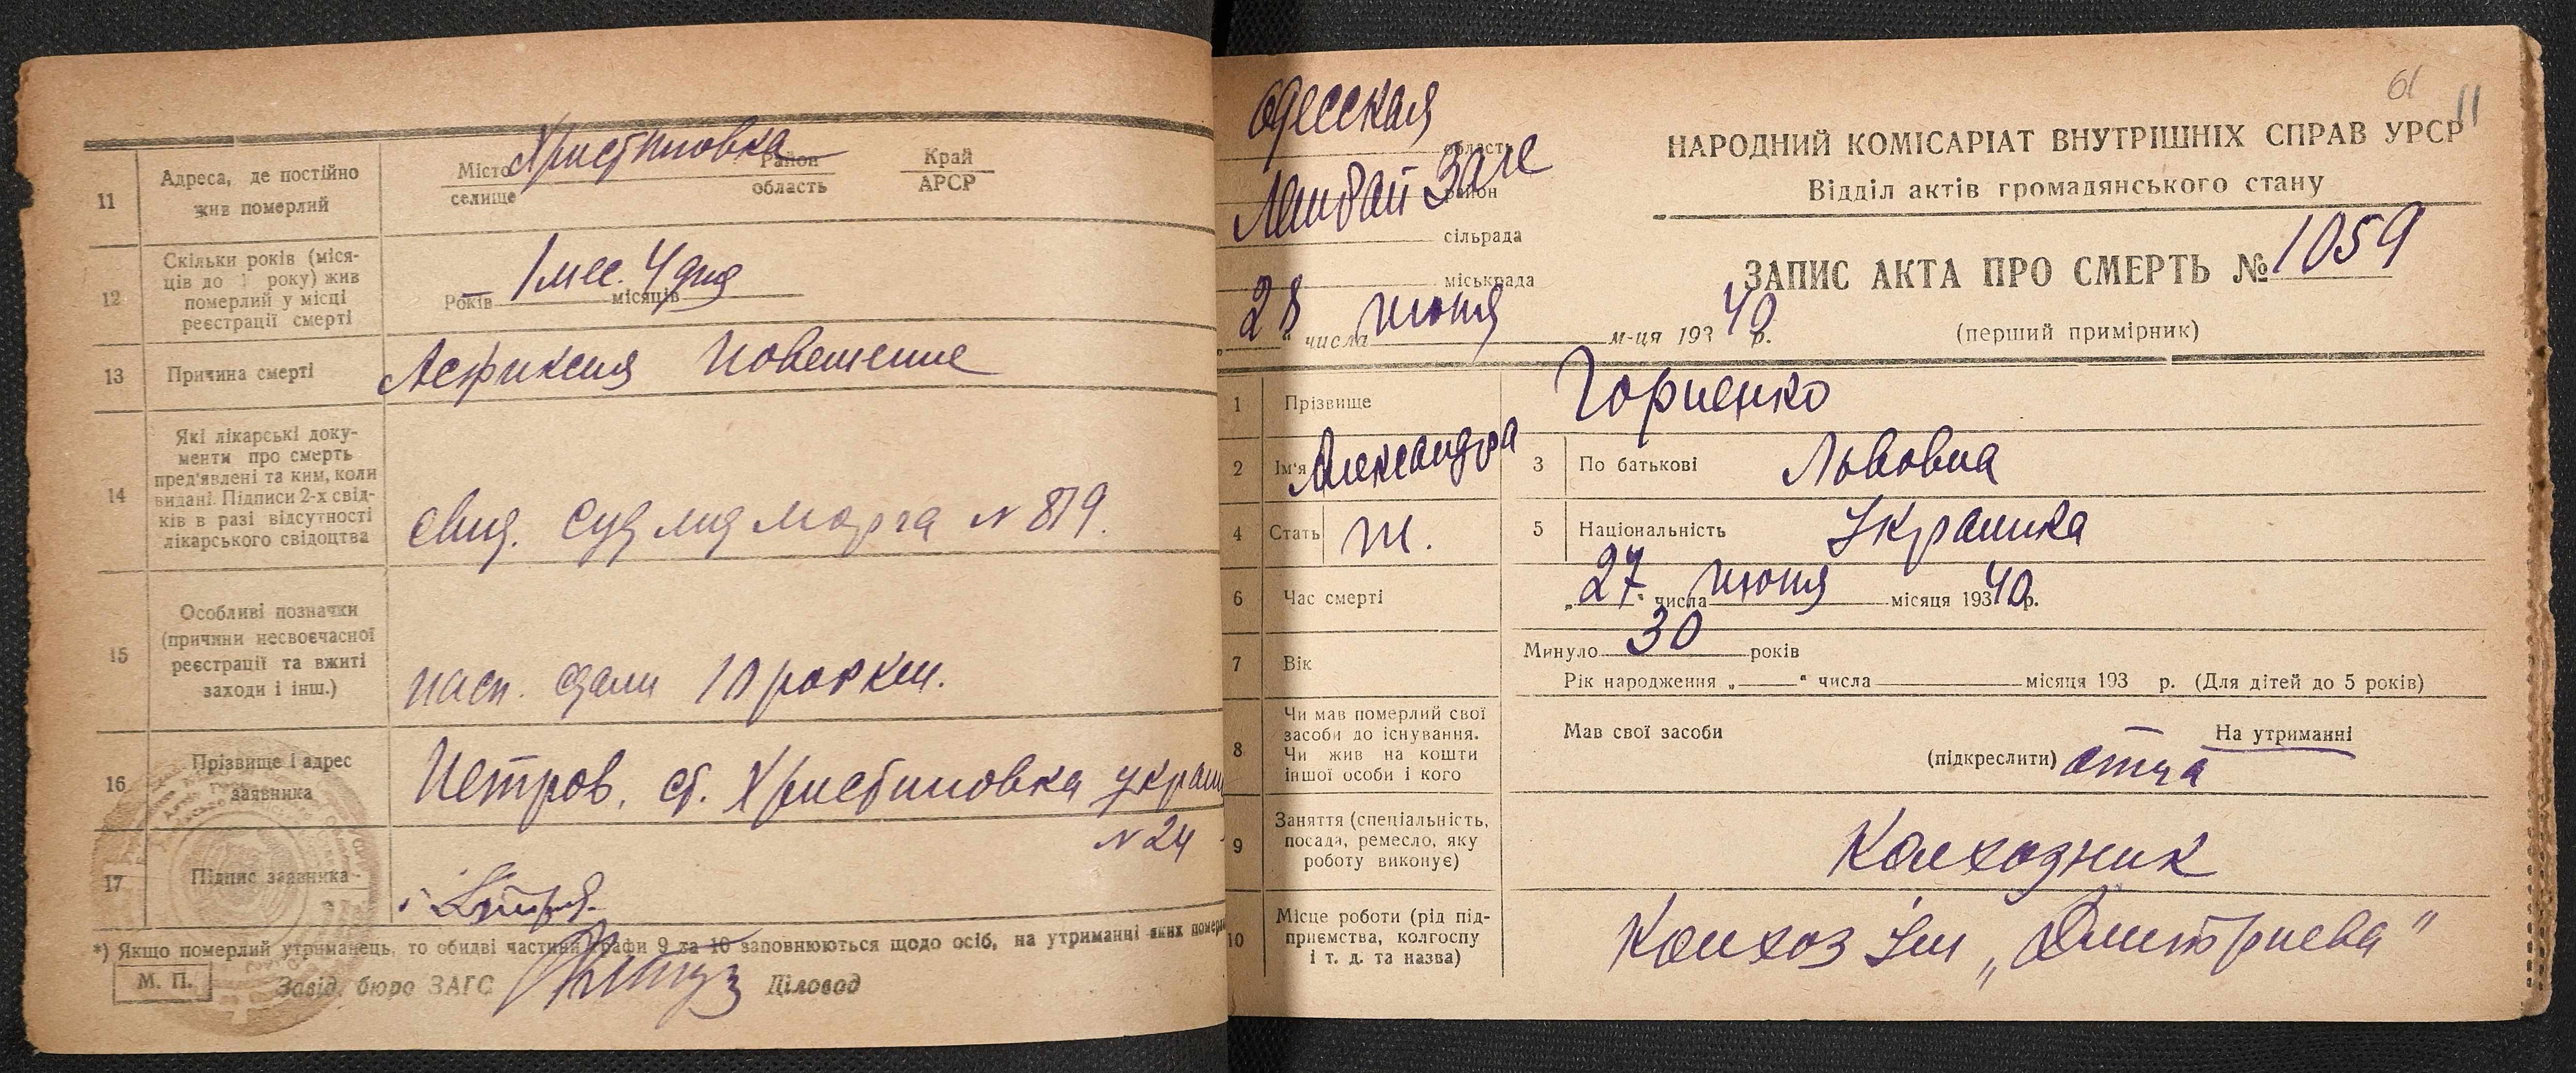 11
Адреса, де постійно
жив померлий
Христиновка
Місто
селище
Район
область
Край
АРСР
12
Скільки років (міся-
ців до 1 року) жив
померлий у місці
реєстрації смерті
Років 1 мес. 4 дня місяців
13
Причина смерті
Асфиксия повешение
14
Які лікарські доку-
менти про смерть
пред'явлені та ким, коли
видані. Підписи 2-х свід-
ків в разі відсутності
лікарського свідоцтва
свид. суд мед морга № 819.
15
Особливі позначки
(причини несвоєчасної
реєстрації та вжиті
заходи і інш.)
пасп. сдали
16
Прізвище і адрес
заявника
Петров, ст. Христиновка
№ 24
17
Підпис заявника
*) Якщо померлий утриманець, то обидві частини графи 9 та 10 заповнюються щодо осіб, на утриманні яких
М. П.
Завід. бюро ЗАГС
Діловод
61
11
Одесская
область
Ленрай Загс
район
сільрада
міськрада
„28“ числа июня м-ця 193 40 р.
НАРОДНИЙ КОМІСАРІАТ ВНУТРІШНІХ СПРАВ УРСР
Відділ актів громадянського стану
ЗАПИС АКТА ПРО СМЕРТЬ № 1059
(перший примірник)
1
Прізвище
Горненко
2
Ім'я
Александра
3
По батькові
Львовна
4
Стать
ж.
5
Національність
Украинка
6
Час смерті
„27“ числа июня місяця 193 40 р.
7
Вік
Минуло 30 років
Рік народження „ “ числа місяця 193 р. (Для дітей до 5 років)
8
Чи мав померлий свої
засоби до існування.
Чи жив на кошти
іншої особи і кого
Мав свої засоби
(підкреслити)
На утриманні
отца
9
Заняття (спеціальність,
посада, ремесло, яку
роботу виконує)
Колхозник
10
Місце роботи (рід під-
приємства, колгоспу
і т. д. та назва)
Колхоз им „Дмитриева“